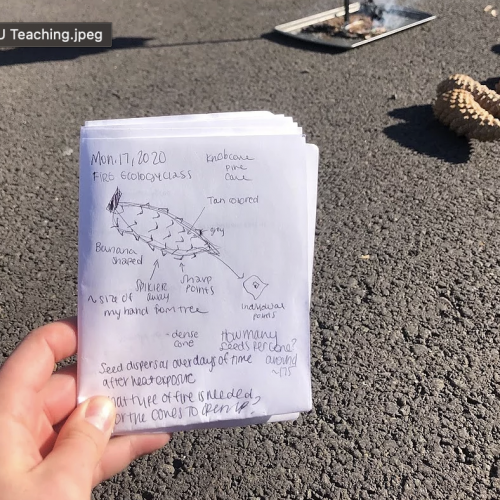 J Teaching.jpeg
Mon. 17, 2020
Fire Ecology Class
Knobcone
Pine
Cone
Tan colored
gry
Banana
shaped
Spikier
away
from tree
sharp
points
~ size of
my hand
individual
points
- dense
cone
How many
seeds per cone?
around
~175
Seed dispersal over days of time
after heat exposure
What type of fire is needed
for the cones to open up?